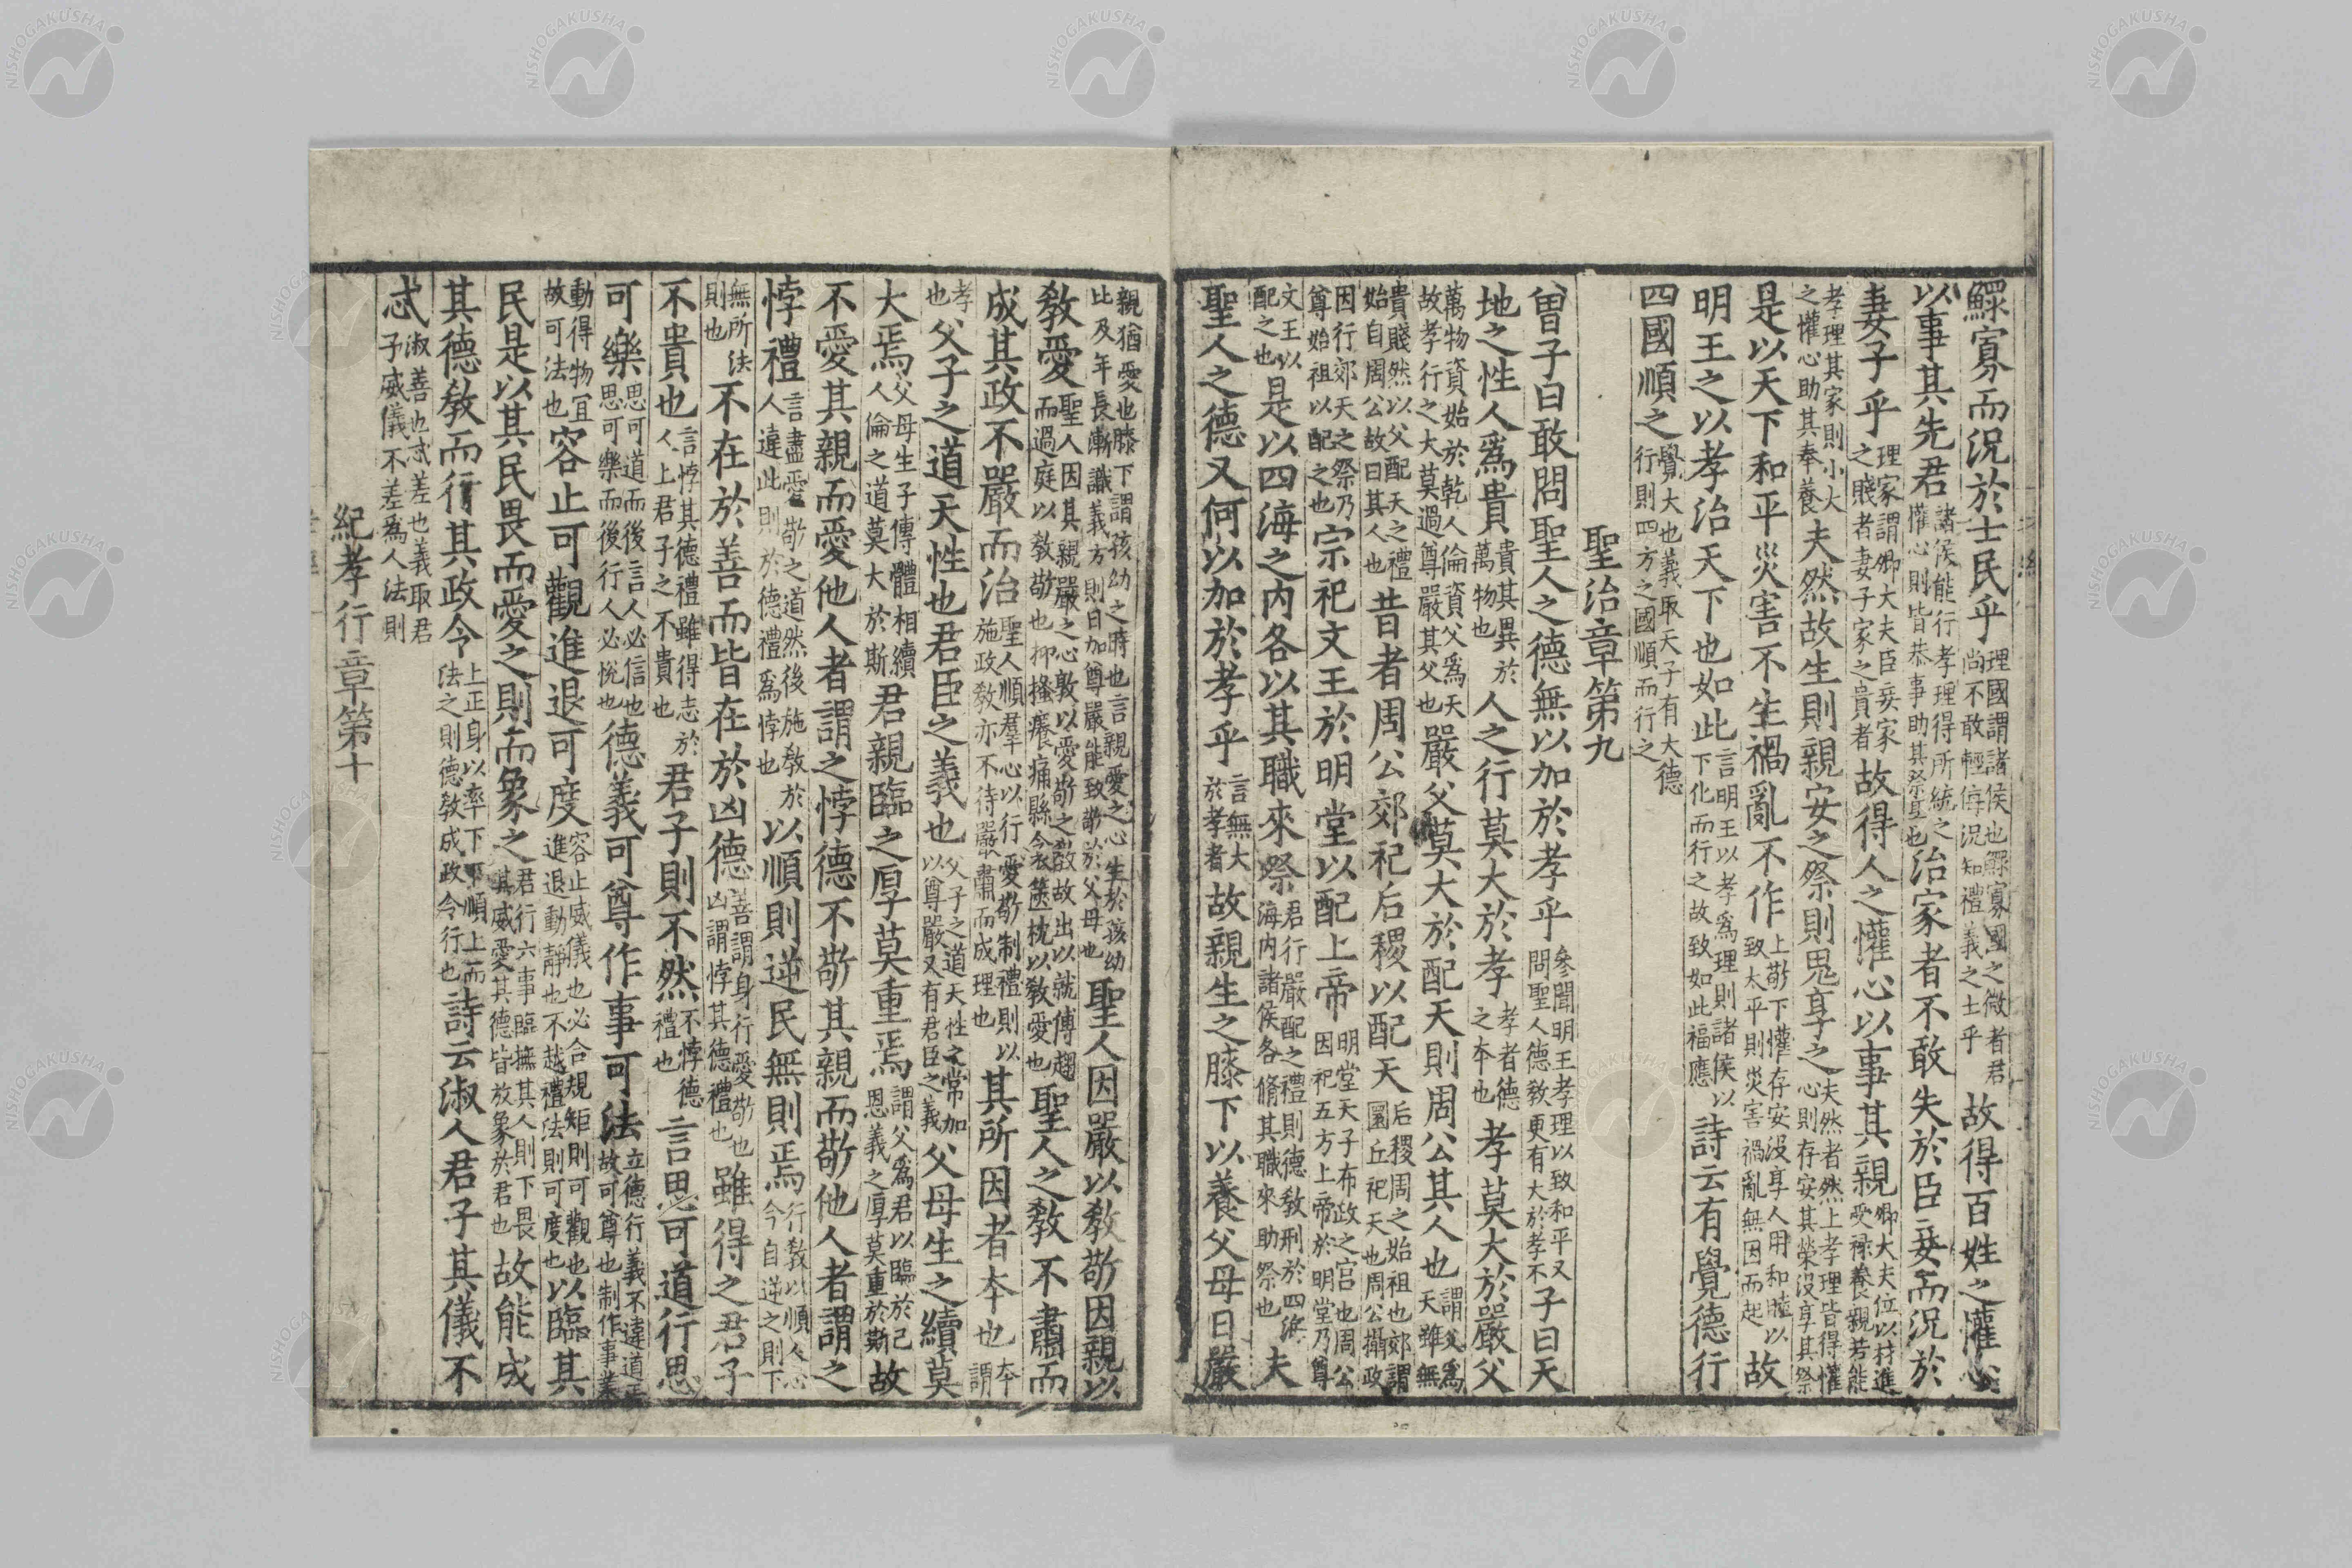 鰥寡而況於士民乎理國謂諸侯也鰥寡國之微者君尚不敢輕侮況知禮義之士乎故得百姓之懽心
以事其先君諸侯能行孝理得所統之懽心則皆恭事助其祭享也治家者不敢失於臣妾而況於
妻子乎理家謂卿大夫臣妾家之賤者妻子家之貴者故得人之懽心以事其親卿大夫位以材進受祿養親若能
孝理其家則小大之懽心助其奉養夫然故生則親安之祭則鬼享之夫然者然上孝理皆得懽心則存安其榮没享其祭
是以天下和平災害不生禍亂不作上敬下懽存安没享人用和睦以致太平則災害禍亂無因而起故
明王之以孝治天下也如此言明王以孝爲理則諸侯以下化而行之故致如此福應詩云有覺德行
四國順之覺大也義取天子有大德行則四方之國順而行之
聖治章第九
曾子曰敢問聖人之德無以加於孝乎參聞明王孝理以致和平又問聖人德教更有大於孝不子曰天
地之性人爲貴貴其異於萬物也人之行莫大於孝孝者德之本也孝莫大於嚴父
萬物資始於乾人倫資父爲天故孝行之大莫過尊嚴其父也嚴父莫大於配天則周公其人也謂父爲天雖無
貴賤然以父配天之禮始自周公故曰其人也昔者周公郊祀后稷以配天后稷周之始祖也郊謂圜丘祀天也周公攝政
因行郊天之祭乃尊始祖以配之也宗祀文王於明堂以配上帝明堂天子布政之宮也周公因祀五方上帝於明堂乃尊
文王以配之也是以四海之内各以其職來祭君行嚴配之禮則德教刑於四海海内諸侯各脩其職來助祭也夫
聖人之德又何以加於孝乎言無大於孝者故親生之膝下以養父母日嚴
親猶愛也膝下謂孩幼之時也言親愛之心生於孩幼比及年長漸識義方則日加尊嚴能致敬於父母也聖人因嚴以教敬因親以
教愛聖人因其親嚴之心敦以愛敬之教故出以就傅趨而過庭以教敬也抑搔癢痛縣衾篋枕以教愛也聖人之教不肅而
成其政不嚴而治聖人順羣心以行愛敬制禮則以施政教亦不待嚴肅而成理也其所因者本也本謂
孝也父子之道天性也君臣之義也父子之道天性之常加以尊嚴又有君臣之義父母生之續莫
大焉父母生子傳體相續人倫之道莫大於斯君親臨之厚莫重焉謂父爲君以臨於己恩義之厚莫重於斯故
不愛其親而愛他人者謂之悖德不敬其親而敬他人者謂之
悖禮言盡愛敬之道然後施教於人違此則於德禮爲悖也以順則逆民無則焉行教以順人心今自逆之則下
無所法則也不在於善而皆在於凶德善謂身行愛敬也凶謂悖其德禮也雖得之君子
不貴也言悖其德禮雖得志於人上君子之不貴也君子則不然不悖德禮也言思可道行思
可樂思可道而後言人必信也思可樂而後行人必悅也德義可尊作事可法立德行義不違道正故可尊也制作事業
動得物宜故可法也容止可觀進退可度容止威儀也必合規矩則可觀也進退動靜也不越禮法則可度也以臨其
民是以其民畏而愛之則而象之君行六事臨撫其人則下畏其威愛其德皆放象於君也故能成
其德教而行其政令上正身以率下下順上而法之則德教成政令行也詩云淑人君子其儀不
忒淑善也忒差也義取君子威儀不差爲人法則
紀孝行章第十
NISHOGAKUSHA